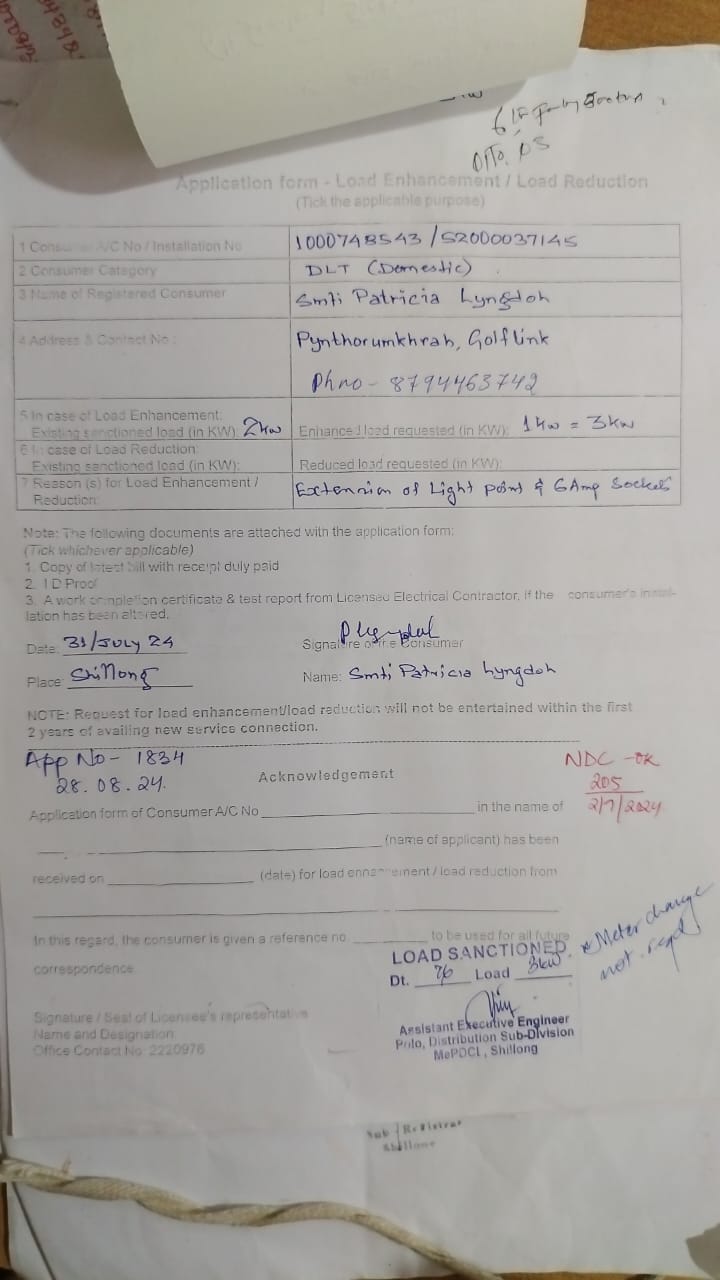 Application form - Load Enhancement / Load Reduction
(Tick the applicable purpose)
1 Consumer A/C No / Installation No 1000748543 / S2000037145
2 Consumer Category DLT (Domestic)
3 Name of Registered Consumer Smti Patricia Lyngdoh
4 Address & Contact No : Pynthorumkhrah, Golflink
Ph no - 8794463742
5 In case of Load Enhancement:
Existing sanctioned load (in KW): 2kw Enhanced load requested (in KW): 1kw = 3kw
6 In case of Load Reduction:
Existing sanctioned load (in KW): Reduced load requested (in KW):
7 Reason (s) for Load Enhancement / Reduction: Extension of Light point & 6Amp Sockets
Note: The following documents are attached with the application form:
(Tick whichever applicable)
1. Copy of latest bill with receipt duly paid
2. ID Proof
3. A work completion certificate & test report from Licensed Electrical Contractor, if the consumer's instal-
lation has been altered.
Date: 31/JULY 24
Signature of the Consumer
Place: Shillong Name: Smti Patricia Lyngdoh
NOTE: Request for load enhancement/load reduction will not be entertained within the first
2 years of availing new service connection.
App No - 1834
28.08.24.
NDC - OK
205
2/7/2024
Acknowledgement
Application form of Consumer A/C No in the name of
(name of applicant) has been
received on (date) for load enhancement / load reduction from
In this regard, the consumer is given a reference no. to be used for all future
correspondence.
Meter change
not reqd
LOAD SANCTIONED
Dt. 76 Load 3kw
Signature / Seal of Licensee's representative
Name and Designation:
Office Contact No: 2220976
Assistant Executive Engineer
Polo, Distribution Sub-Division
MePDCL, Shillong
Sub Registrar
Shillong